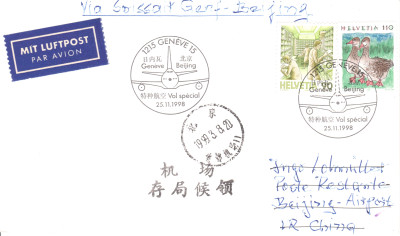 Via Swissair Genf-Beijing
MIT LUFTPOST
PAR AVION
1215 GENÈVE 15
日内瓦 北京
Genève Beijing
特种航空 Vol spécial
25.11.1998
HELVETIA
HELVETIA 110
1215 GENÈVE 15
Genève Beijing
特种航空 Vol spécial
25.11.1998
北京
机场
存局候领
Ingo
Poste Restante
Beijing-Airport
VR China